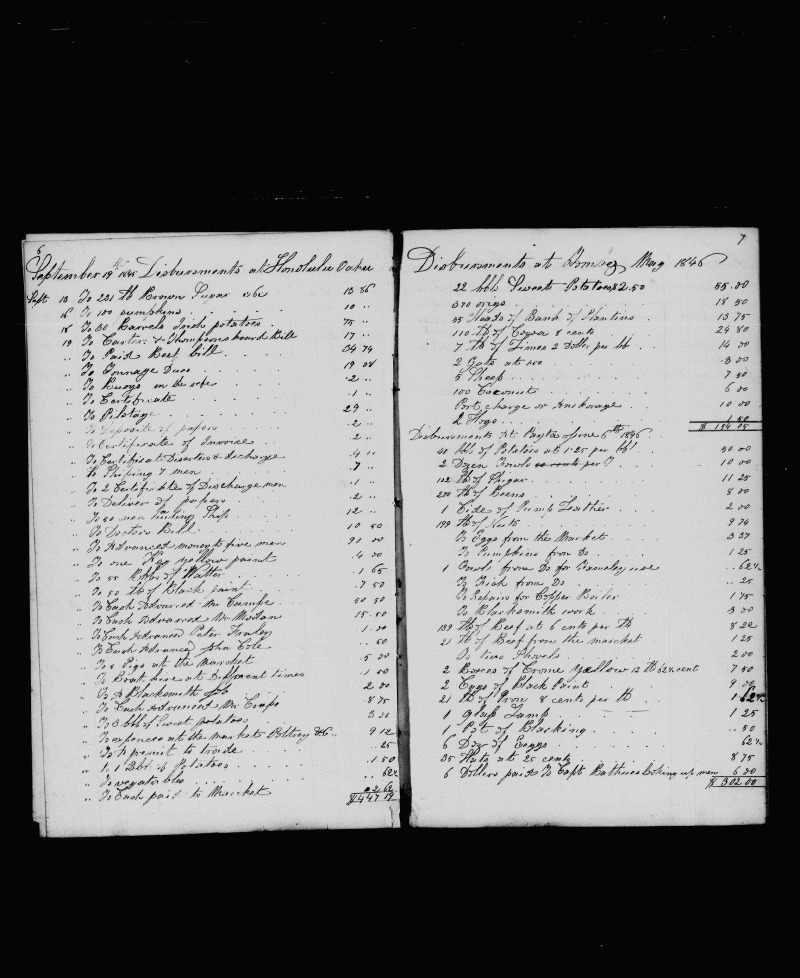 6
September 19th 1845 Disbursments at Honolulu Oahu
Sept 13 To 231 lb Brown Sugar 13 86
16 To 100 pumpkins 10 ..
18 To 30 Barrels Irish potatoes 75 ..
19 To Carter & Thompsons board Bill 17 ..
.. To Paid Beef bill 34 74
.. To Tonnage Dues 19 04
.. To Buoys 2 ..
.. To Certificate 1 ..
.. To Pilotage 29 ..
.. To Deposite of papers 2 ..
.. To Certificate of Invoice 2 ..
.. To Certificat Desertion & discharge 4 ..
.. To Shiping 7 men 7 ..
.. To 2 Certificate of Discharge men 1 ..
.. To Deliver of papers 2 ..
.. To 50 Ship 12 ..
.. To Doctors Bill 10 50
.. To Advanced money to five men 90 00
.. To one Keg yellow paint 4 00
.. To 55 Bbls of Watter 1 65
.. To 50 lb of Black paint 7 50
.. To Cash Advanced Mr Cumpe 50 50
.. To Cash Advanced Mr 15.50
.. To Cash Advanced Peter 1.00
.. To Cash Advanced John Cole .. 50
.. To 2 Pigs at the Marcket 5 00
.. To Boat hire at Different times 1 50
.. To Blacksmith Job 2 00
.. To Cash Advanced Mr 8 75
.. To 3 bbl of Sweet potatoes 3 50
.. To expences at the market Poltrey &c 9 12
.. To A permit to trade .. 25
.. To 1 Bbl of Potatoes 1 50
.. To vegatables .. 62½
.. To Cash paid to Marcket
$447 19
7
Disbursments at May 1846
22 bbls Sweet Potatoes $2.50 55.00
18 50
55 Heads of Bunch of Plantins 13 75
110 lb of Cocoa 8 cents 24 80
7 lb of Limes 2 Doller per bb 14 00
2 Gots at 150 3 00
5 Sheep 7 50
100 Coconuts 6 00
Port charge or Anckorage 10 00
2 Hogs 1 50
$ 154 05
Disbursments At Payta June 6th 1846
40 bbl of Potatoes at 1.25 per bbl 50 00
2 Dozen Fowls per 10 00
112 lb of Shigar 11 25
200 lb of Beens 8 00
1 Side of Pump Leather 2 00
199 lb of 9 74
To Eggs from the Market 3 37
To Pumpkins from Do 1 25
1 Fowls from Do for Famely use .. 62½
To Fish from Do .. 25
To Repairs for Copper Boiler 1 75
To Blacksmith work 3 00
139 lb of Beef at 6 cents per lb 8 22
21 lb of Beef from the marcket 1 25
To two Shovels 2 00
2 Boxes of Crome Yellow 12 lb 62½ cent 7 50
2 Cags of Black Paint 9 00
21 lb of Iron 8 cents per lb 1 62½
1 glass Lamp 1 25
1 Pot of Blacking .. 50
6 Doz of Eggs 62½
35 Hats at 25 cents 8 75
6 Dollers paid To Capt looking up men 6 00
$ 302 00